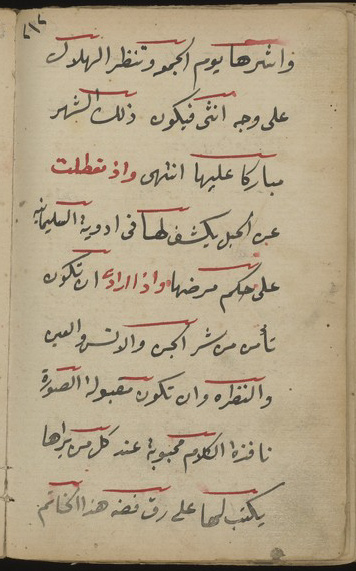 ٤١٢
واشرها يوم الجمعه وتنظر الهلال
على وجه انثى فيكون ذلك الشهر
مباركا عليها انتهى واذ تعطلت
عن الحبل يكشف لها فى ادوية السليمانيه
على حكم مرضها واذا ارادت ان تكون
تأمن من شر الجن والانس والعين
والنظره وان تكون مقبولة الصورة
نافذة الكلام محبوبة عند كل من يراها
يكتب لها على رق فضه هذا الخاتم